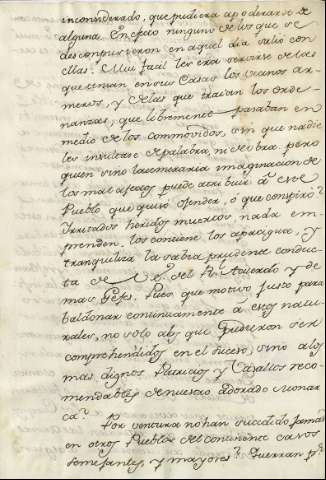 inconsiderado, que pudiera apoderarse de
alguna. En efecto ninguno de los que se
descompusieron en aquel dia salio con
ellas. Mui facil les era servirse de las
que tenian en sus Casas los vecinos ar-
meros, y de las que traian los orde-
nanzas, que libremente pasaban en
medio de los commovidos, sin que nadie
les insultase de palabra, ni de obra. pero
quien sino la temeraria imaginacion de
los mal afectos puede atribuir á este
Pueblo que quiso ofender, o que conspiró?
Irritados heridos muertos nada em-
prenden. los contiene los apacigua, y
tranquiliza la sabia prudente conduc-
ta de V.E. del Rl. Acuerdo y de
mas Gefes. Pues que motivo justo para
baldonar continuamente á estos natu-
rales, no solo a los que pudieron ser
comprehendidos en el suceso, sino a los
mas dignos Patricios y Vasallos reco-
mendables de nuestro adorado Monar
ca?
Por ventura no han sucedido jamas
en otros Pueblos del continente casos
semejantes, y mayores?